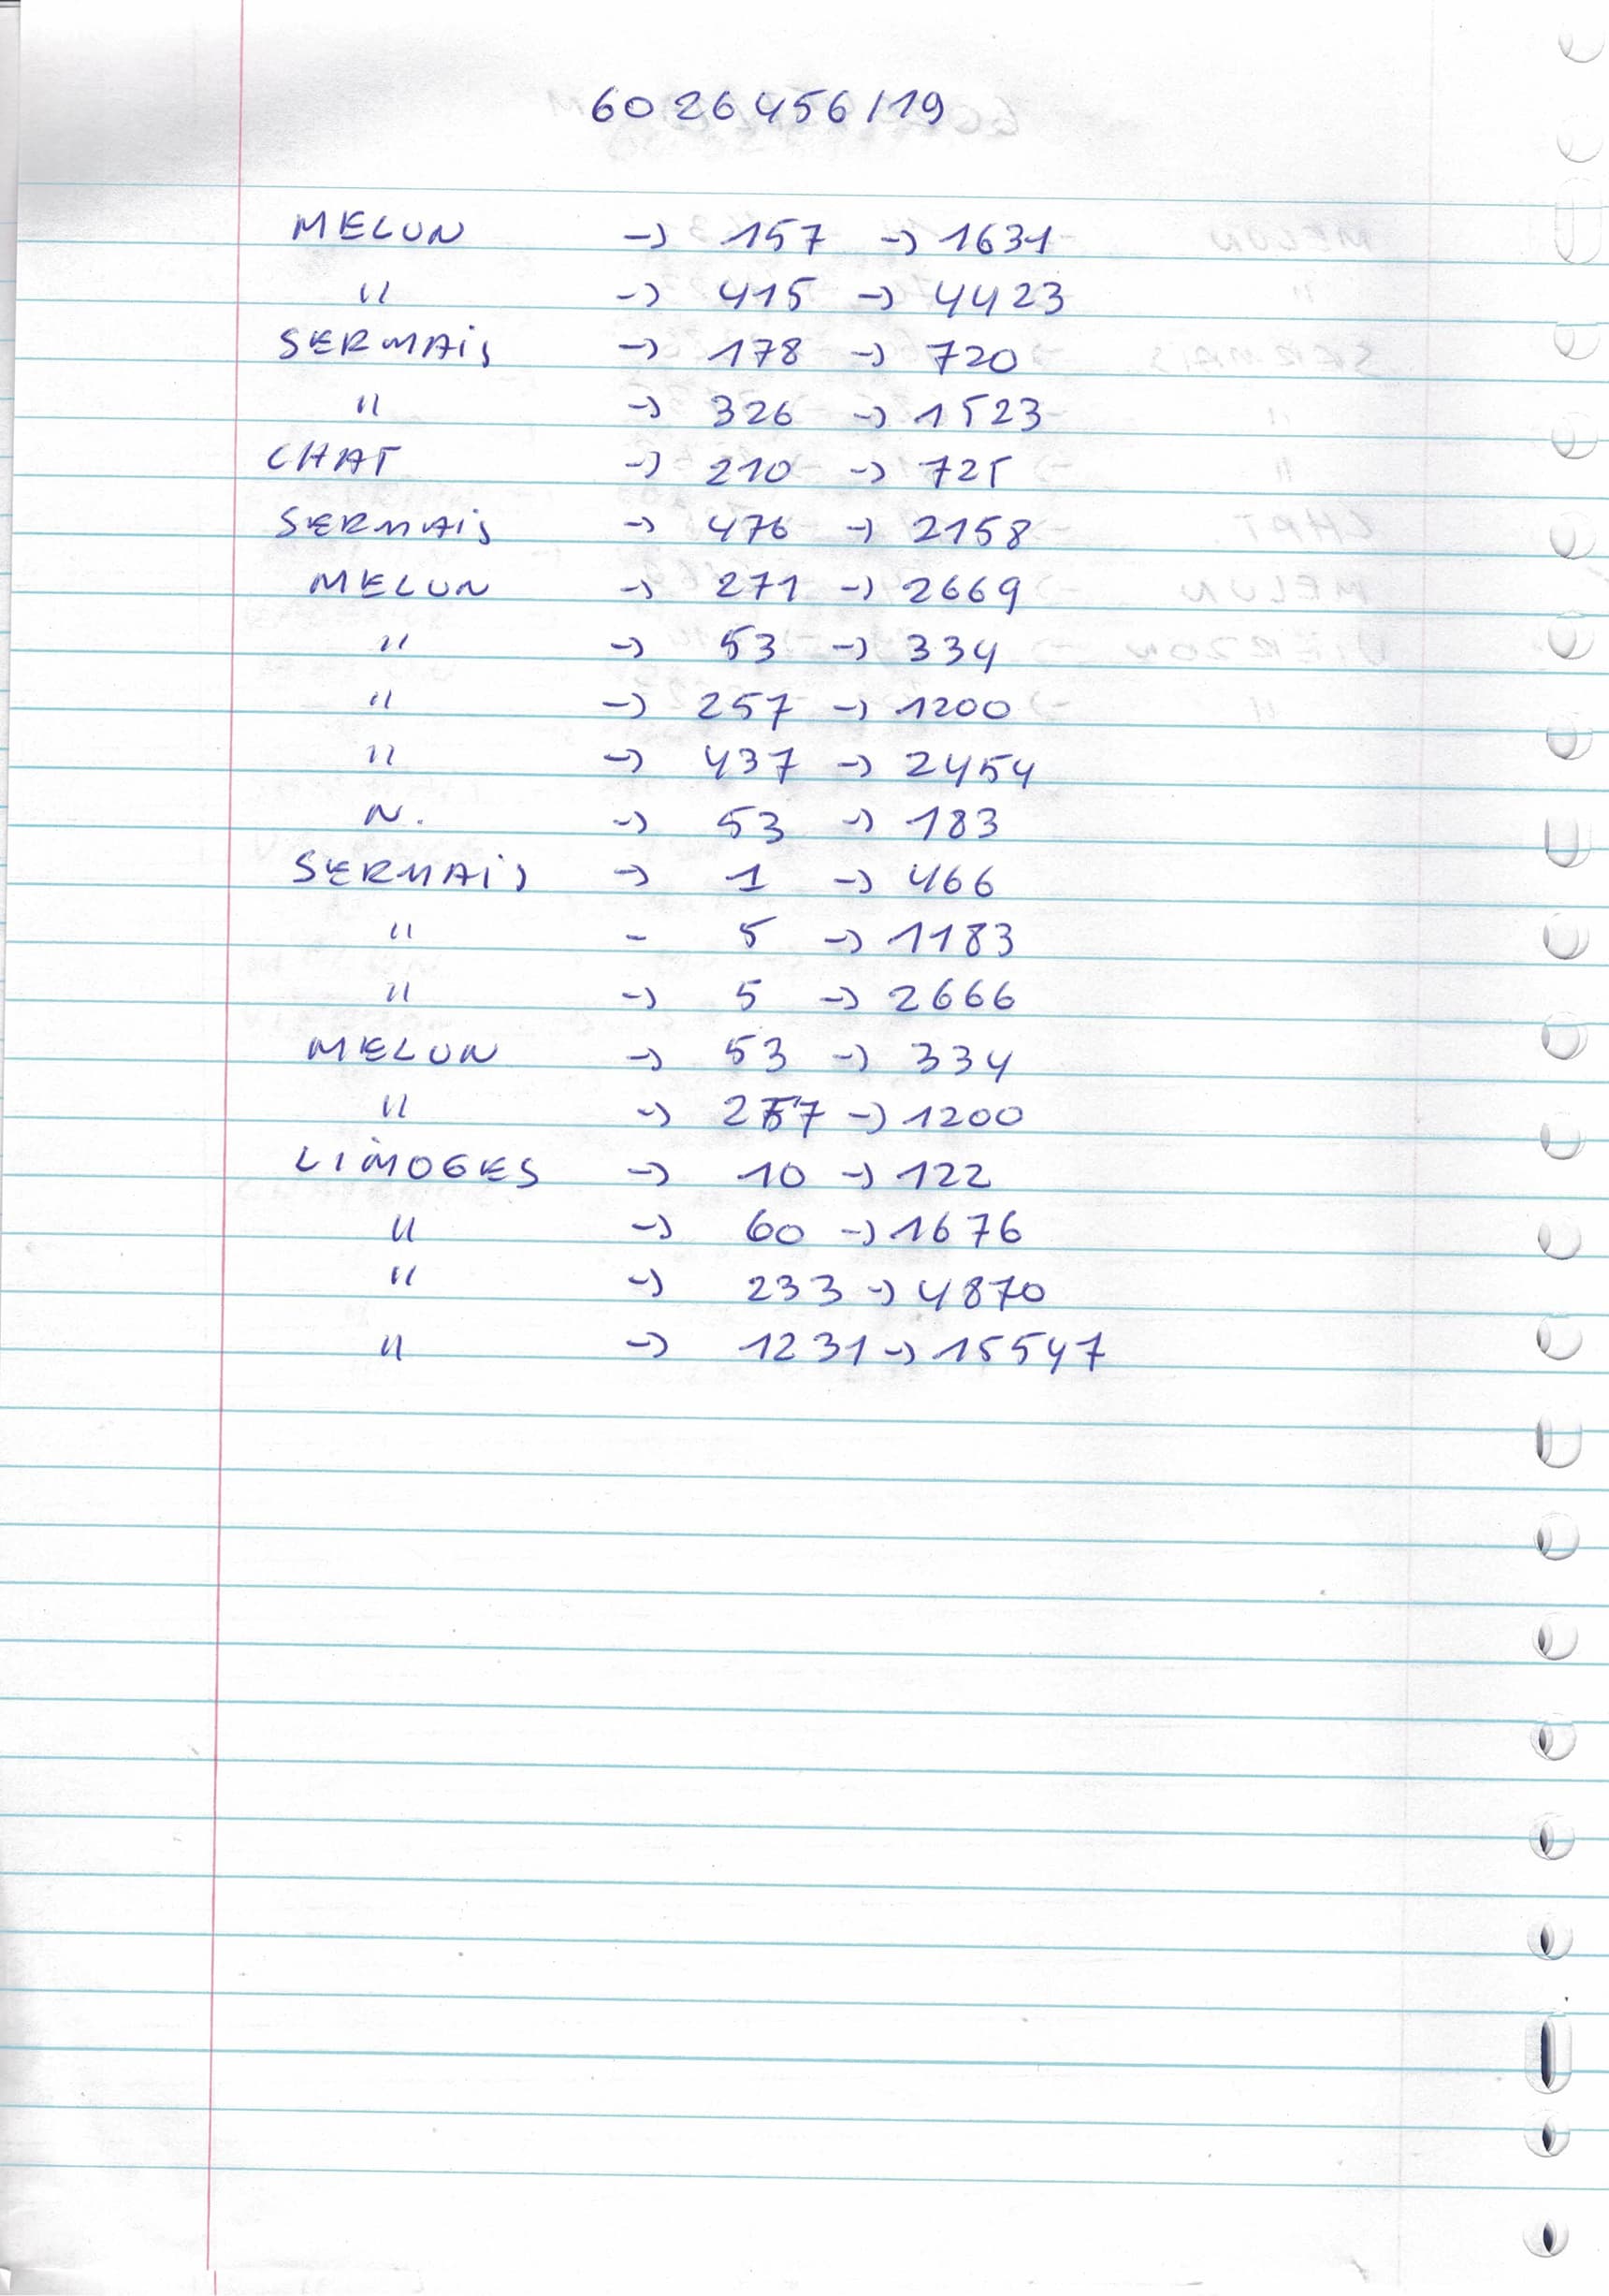 6026456/19
MELUN -> 157 -> 1631
" -> 415 -> 4423
SERMAIS -> 178 -> 720
" -> 326 -> 1523
CHAT -> 210 -> 725
SERMAIS -> 476 -> 2158
MELUN -> 271 -> 2669
" -> 53 -> 334
" -> 257 -> 1200
" -> 437 -> 2454
N. -> 53 -> 183
SERMAIS -> 1 -> 466
" - 5 -> 1183
" -> 5 -> 2666
MELUN -> 53 -> 334
" -> 257 -> 1200
LIMOGES -> 10 -> 122
" -> 60 -> 1676
" -> 233 -> 4870
" -> 1231 -> 15547